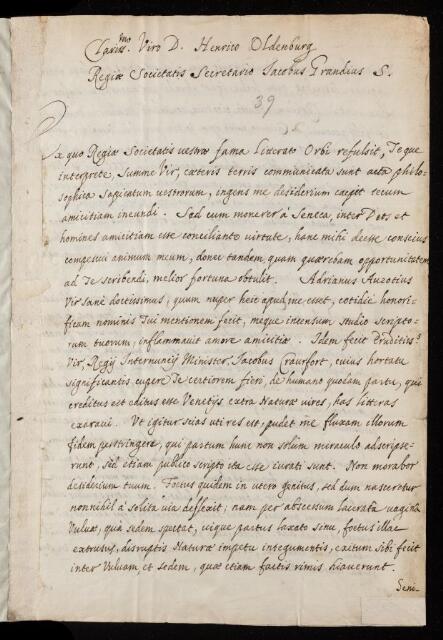 Clariss.mo Viro D. Henrico Oldenburg
Regiæ Societatis Secretario Jacobus Grandius S.
39
Ex quo Regiæ Societatis vestræ fama Litterato Orbi refulsit, Teque
interprete, Summe Vir, exteris terris communicata sunt acta philo-
sophica sapientum vestrorum, ingens me desiderium caepit tecum
amicitiam ineundi. Sed cum monerer à Seneca, inter Deos et
homines amicitiam esse conciliante virtute, hanc mihi deesse conscius
compescui animum meum, donec tandem quam quærebam opportunitatem
ad Te scribendi, melior fortuna obtulit. Adrianus Auzotius
Vir sanè doctissimus, quum nuper heic apud me esset, cotidie honori-
ficam nominis Tui mentionem fecit, meque incensum studio scripto-
rum tuorum, inflammavit amore amicitiæ. Idem fecit Eruditiss.s
Vir, Regij Internuncij Minister, Jacobus Craufort, cuius hortatu
significantis cupere Te certiorem fieri, de humano quodam partu, qui
creditus est editus esse Venetijs extra Naturæ vires, has litteras
exaravi. Ut igitur scias uti res est, pudet me fluxam illorum
fidem perstringere, qui partum hunc non solùm miraculo adscripse-
runt, sed etiam publico scripto ita esse curati sunt. Non morabor
desiderium tuum. Foetus quidem in utero genitus, sed dum nasceretur
nonnihil à solita via deflexit; nam per abscessum lacerata vagina
Vulvæ, quà sedem spectat, vique partus laxato sinu, foetus illac
extrusus, disruptis Naturæ impetu integumentis, exitum sibi fecit
inter Vulvam, et sedem, quæ etiam factis rimis hiaverunt.
Seni-